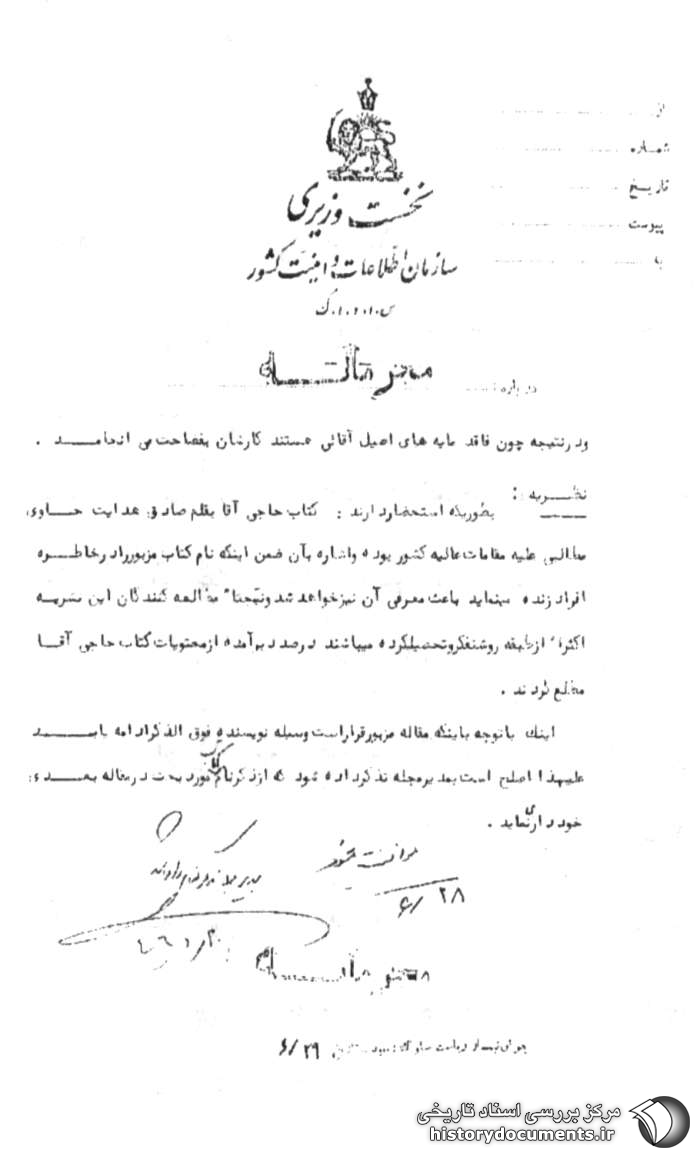 از
شماره
تاریخ
پیوست
به
نخست وزیری
سازمان اطلاعات و امنیت کشور
درباره
ودرنتیجه چون فاقد مایه های اصیل آقائی هستند کارشان بفضاحت می انجامد .
نظریه : بطوریکه استحضاردارند : کتاب حاجی آقا بقلم صادق هدایت حاوی
مطالبی علیه مقامات عالیه کشور بوده واشاره بآن ضمن اینکه نام کتاب مزبوررادرخاطره
افراد زنده مینماید باعث معرفی آن نیزخواهد شد ونتیجتا" مطالعه کنندگان این نشریه
اکثرا" ازطبقه روشنفکروتحصیلکرده میباشند درصدد برآمده ازمحتویات کتاب حاجی آقا
مطلع گردند .
اینك باتوجه باینکه مقاله مزبورقراراست وسیله نویسنده فوق الذکرادامه یابد
علیهذا اصلح است بمدیرمجله تذکرداده شود که ازذکرنام کتاب مورد بحث درمقاله بعدی
خودداری نماید .
۶/۲۸
۶/۲۹
مرکز بررسی اسناد تاریخی
historydocuments.ir